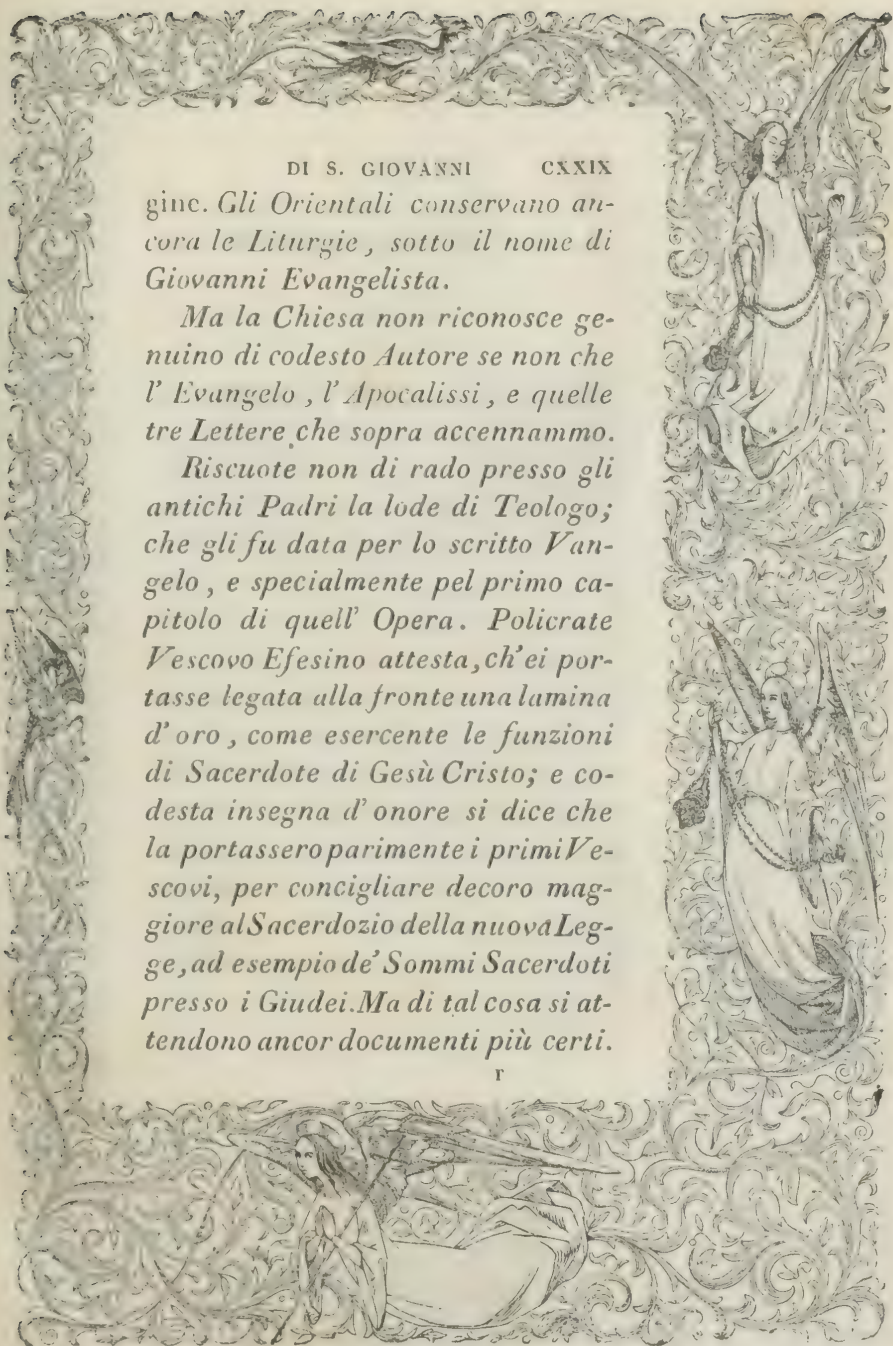 DI S. GIOVANNI CXXIX
gine. Gli Orientali conservano an-
cora le Liturgie, sotto il nome di
Giovanni Evangelista.
Ma la Chiesa non riconosce ge-
nuino di codesto Autore se non che
l' Evangelo, l' Apocalissi, e quelle
tre Lettere che sopra accennammo.
Riscuote non di rado presso gli
antichi Padri la lode di Teologo;
che gli fu data per lo scritto Van-
gelo, e specialmente pel primo ca-
pitolo di quell' Opera. Policrate
Vescovo Efesino attesta, ch'ei por-
tasse legata alla fronte una lamina
d' oro, come esercente le funzioni
di Sacerdote di Gesù Cristo; e co-
desta insegna d' onore si dice che
la portassero parimente i primi Ve-
scovi, per concigliare decoro mag-
giore al Sacerdozio della nuova Leg-
ge, ad esempio de' Sommi Sacerdoti
presso i Giudei. Ma di tal cosa si at-
tendono ancor documenti più certi.
r